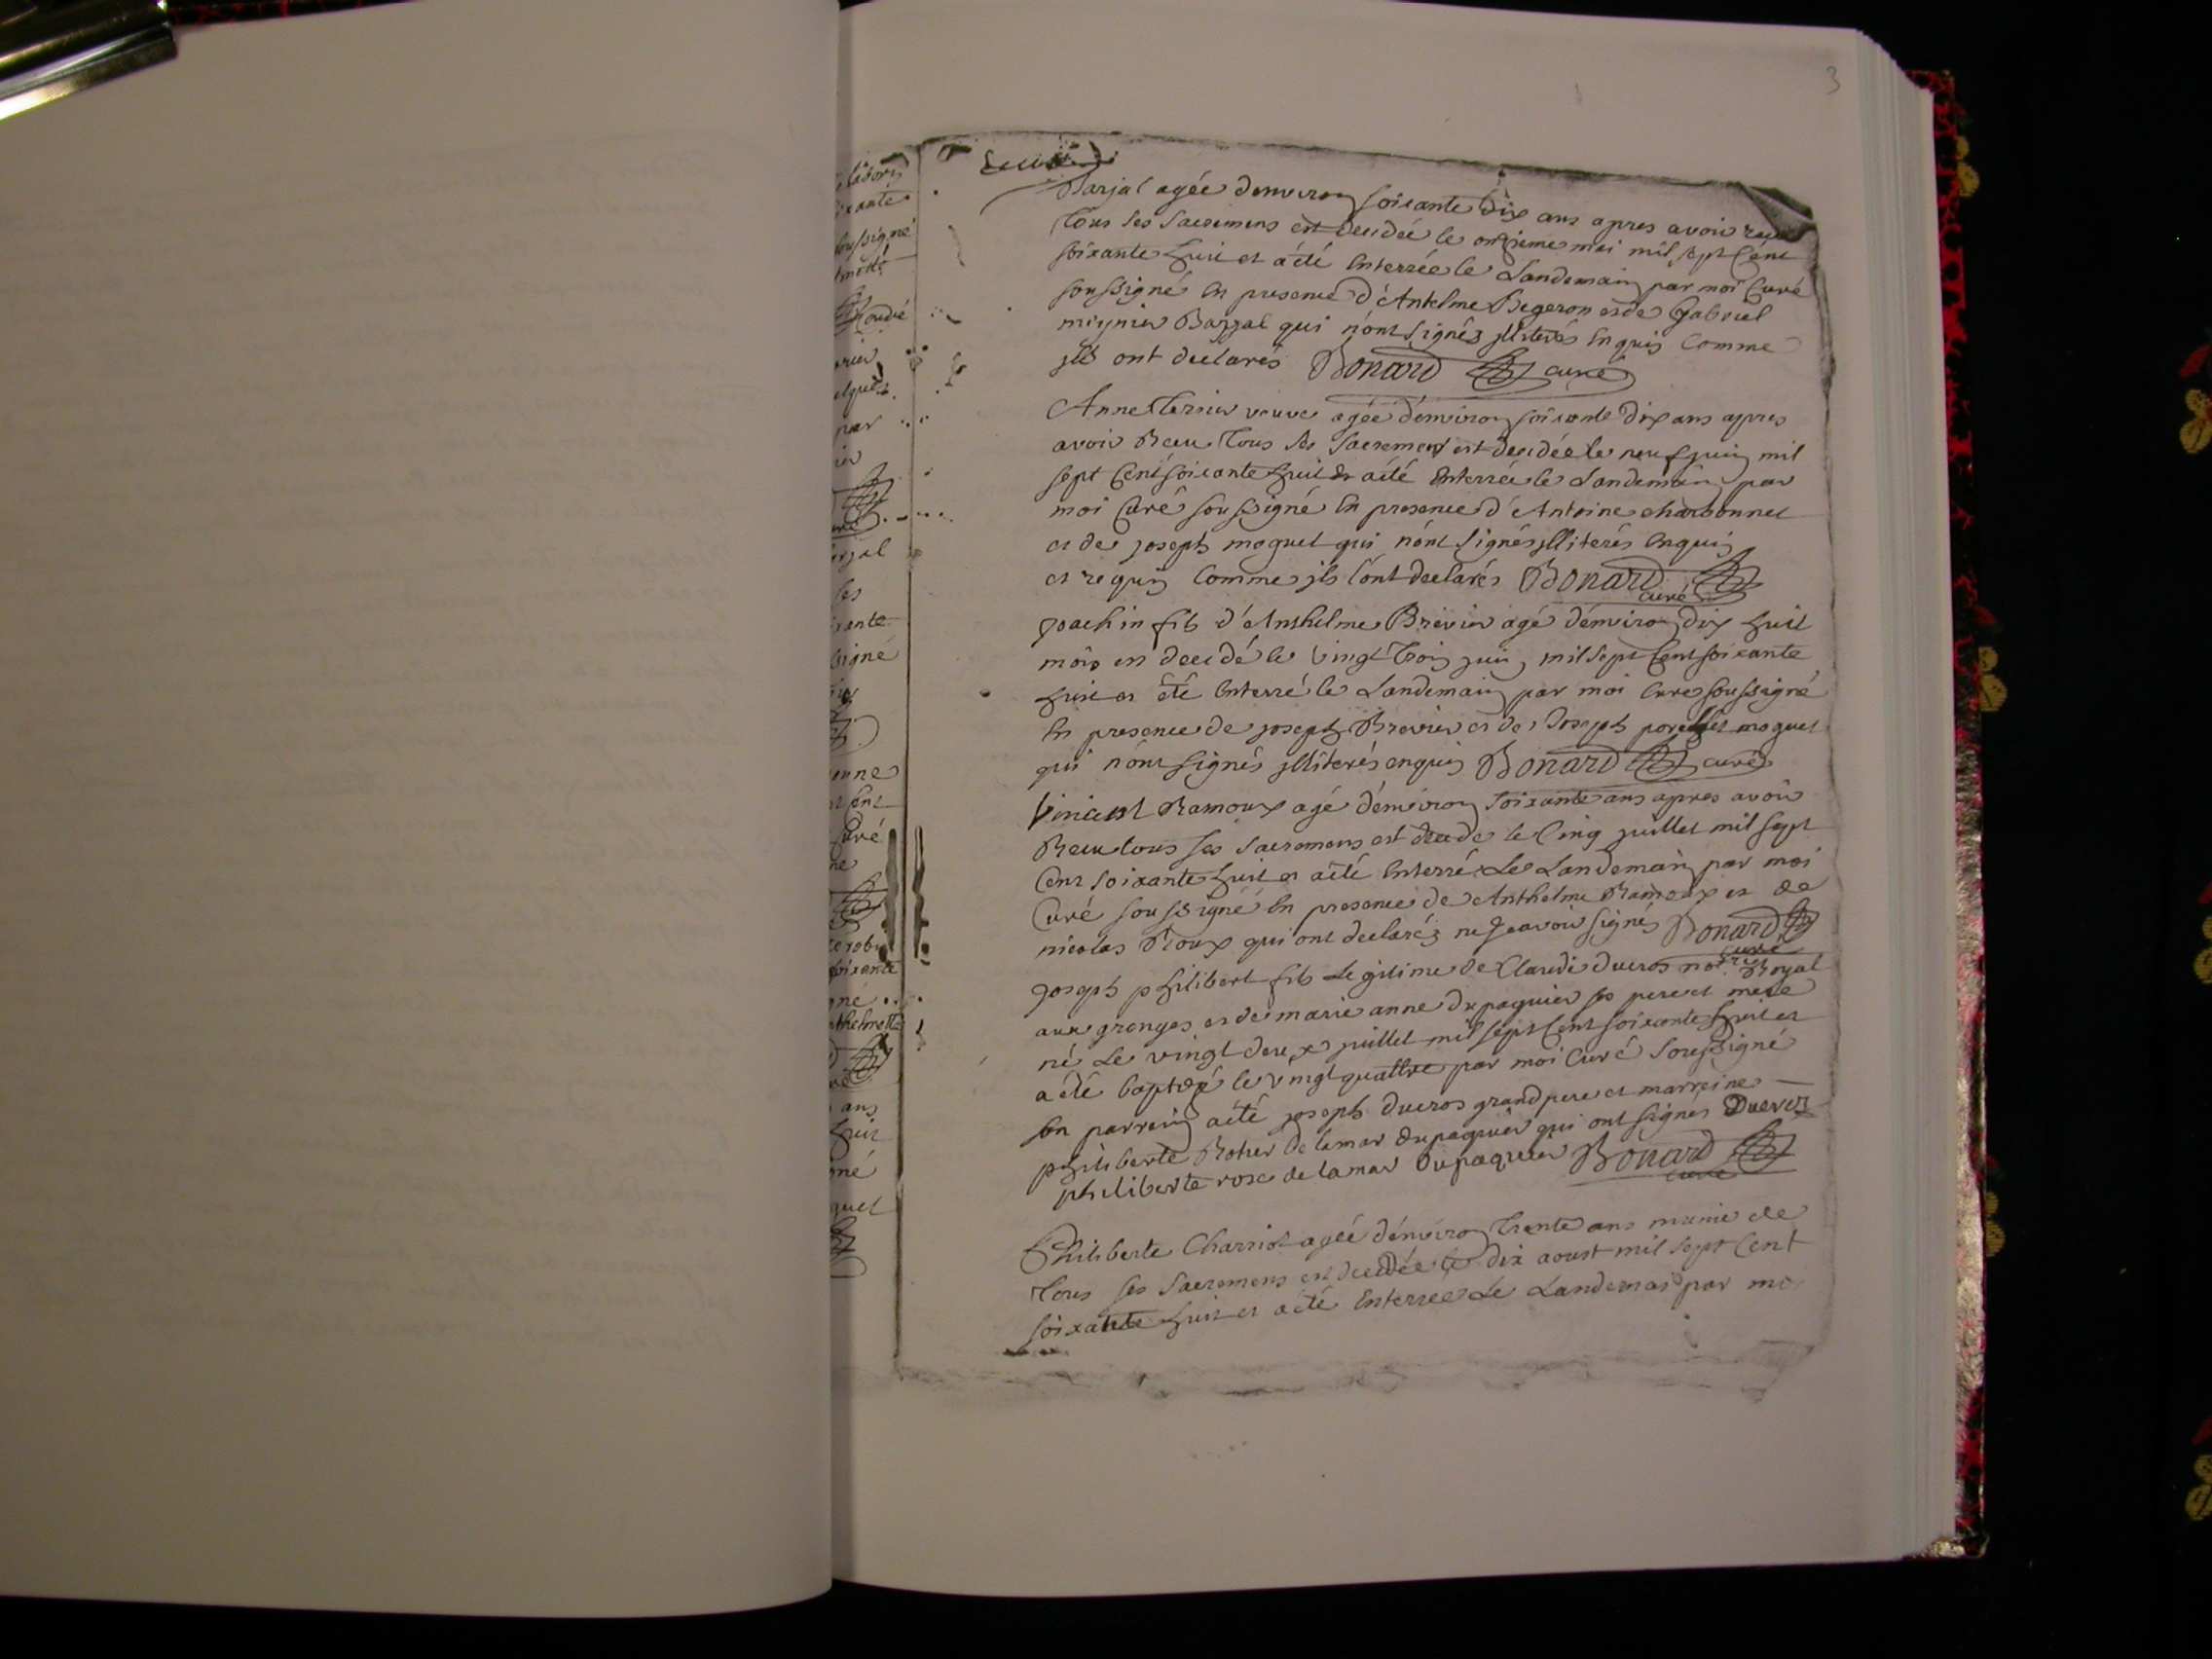 3
Barjal agée denviron soixante dix ans apres avoir reçu
tous ses Sacremens est decidée le onzieme mai mil sept Cent
soixante huit et a été Enterrée le Landemain par moi Curé
soussigné En presence d'Antelme Begeron et de Gabriel
meynier Barjal qui n'ont signés jlliterés Enquis Comme
jls ont declarés Bonard curé
Anne Terrier veuve agée d'environ soixante dix ans apres
avoir Recu Tous ses Sacremens est decidée le neuf juin mil
sept Cent soixante huit et a été Enterrée le Landemain par
moi Curé soussigné En presence d'Antoine charbonnet
et de joseph moguet qui n'ont signés jlliterés Enquis
et requis Comme jls l'ont declarés Bonard curé
joachin fils d'Anthelme Brevier agé d'environ dix huit
mois est decidé le vingt Trois juin mil sept Cent soixante
huit et été Enterré le Landemain par moi Curé soussigné
En presence de joseph Brevier et de Joseph moguet
qui n'ont signés jlliterés enquis Bonard curé
Vincent Ramoux agé d'environ soixante ans apres avoir
Recu tous ses Sacremens est decidé le Cinq juillet mil sept
Cent soixante huit et a été Enterré Le Landemain par moi
Curé soussigné En presence de Anthelme Ramoux et de
nicolas Roux qui ont declarés ne sçavoir signés Bonard curé
joseph philibert fils Legitime de Claude ducros notaire Royal
aux granges et de marie anne dupaquier ses pere et mere
né Le vingt deux juillet mil sept Cent soixante huit et
a été baptisé le vingt quattre par moi Curé soussigné
son parrain a été joseph ducros grand pere et marreine
philiberte de lamar dupaquier qui ont signés Ducros
philiberte rose de lamar dupaquier Bonard curé
Philiberte Charriot agée d'environ Trente ans munie de
Tous ses Sacremens est decidée le dix aoust mil sept Cent
soixante huit et a été Enterrée Le Landemain par moi